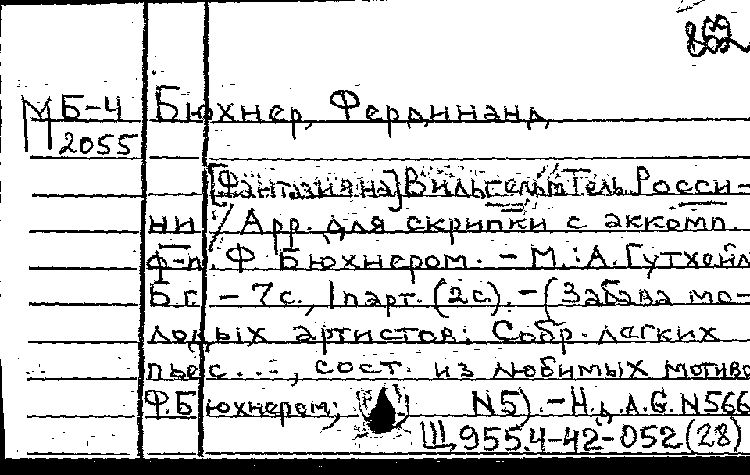 862
МБ-4 Бюхнер, Фердинанд
2055
[Фантазия на] Вильгельм Телль Росси-
ни / Арр. для скрипки с аккомп.
ф-п. Ф Бюхнером. - М.: А. Гутхейл
Б.г. - 7с., 1 парт. (2с). - (Забава мо-
лодых артистов: Собр. легких
пьес..., сост. из любимых мотиво
Ф. Бюхнером; N5). - Н.д. A.G. N566
Щ 955.4-42-052 (28)